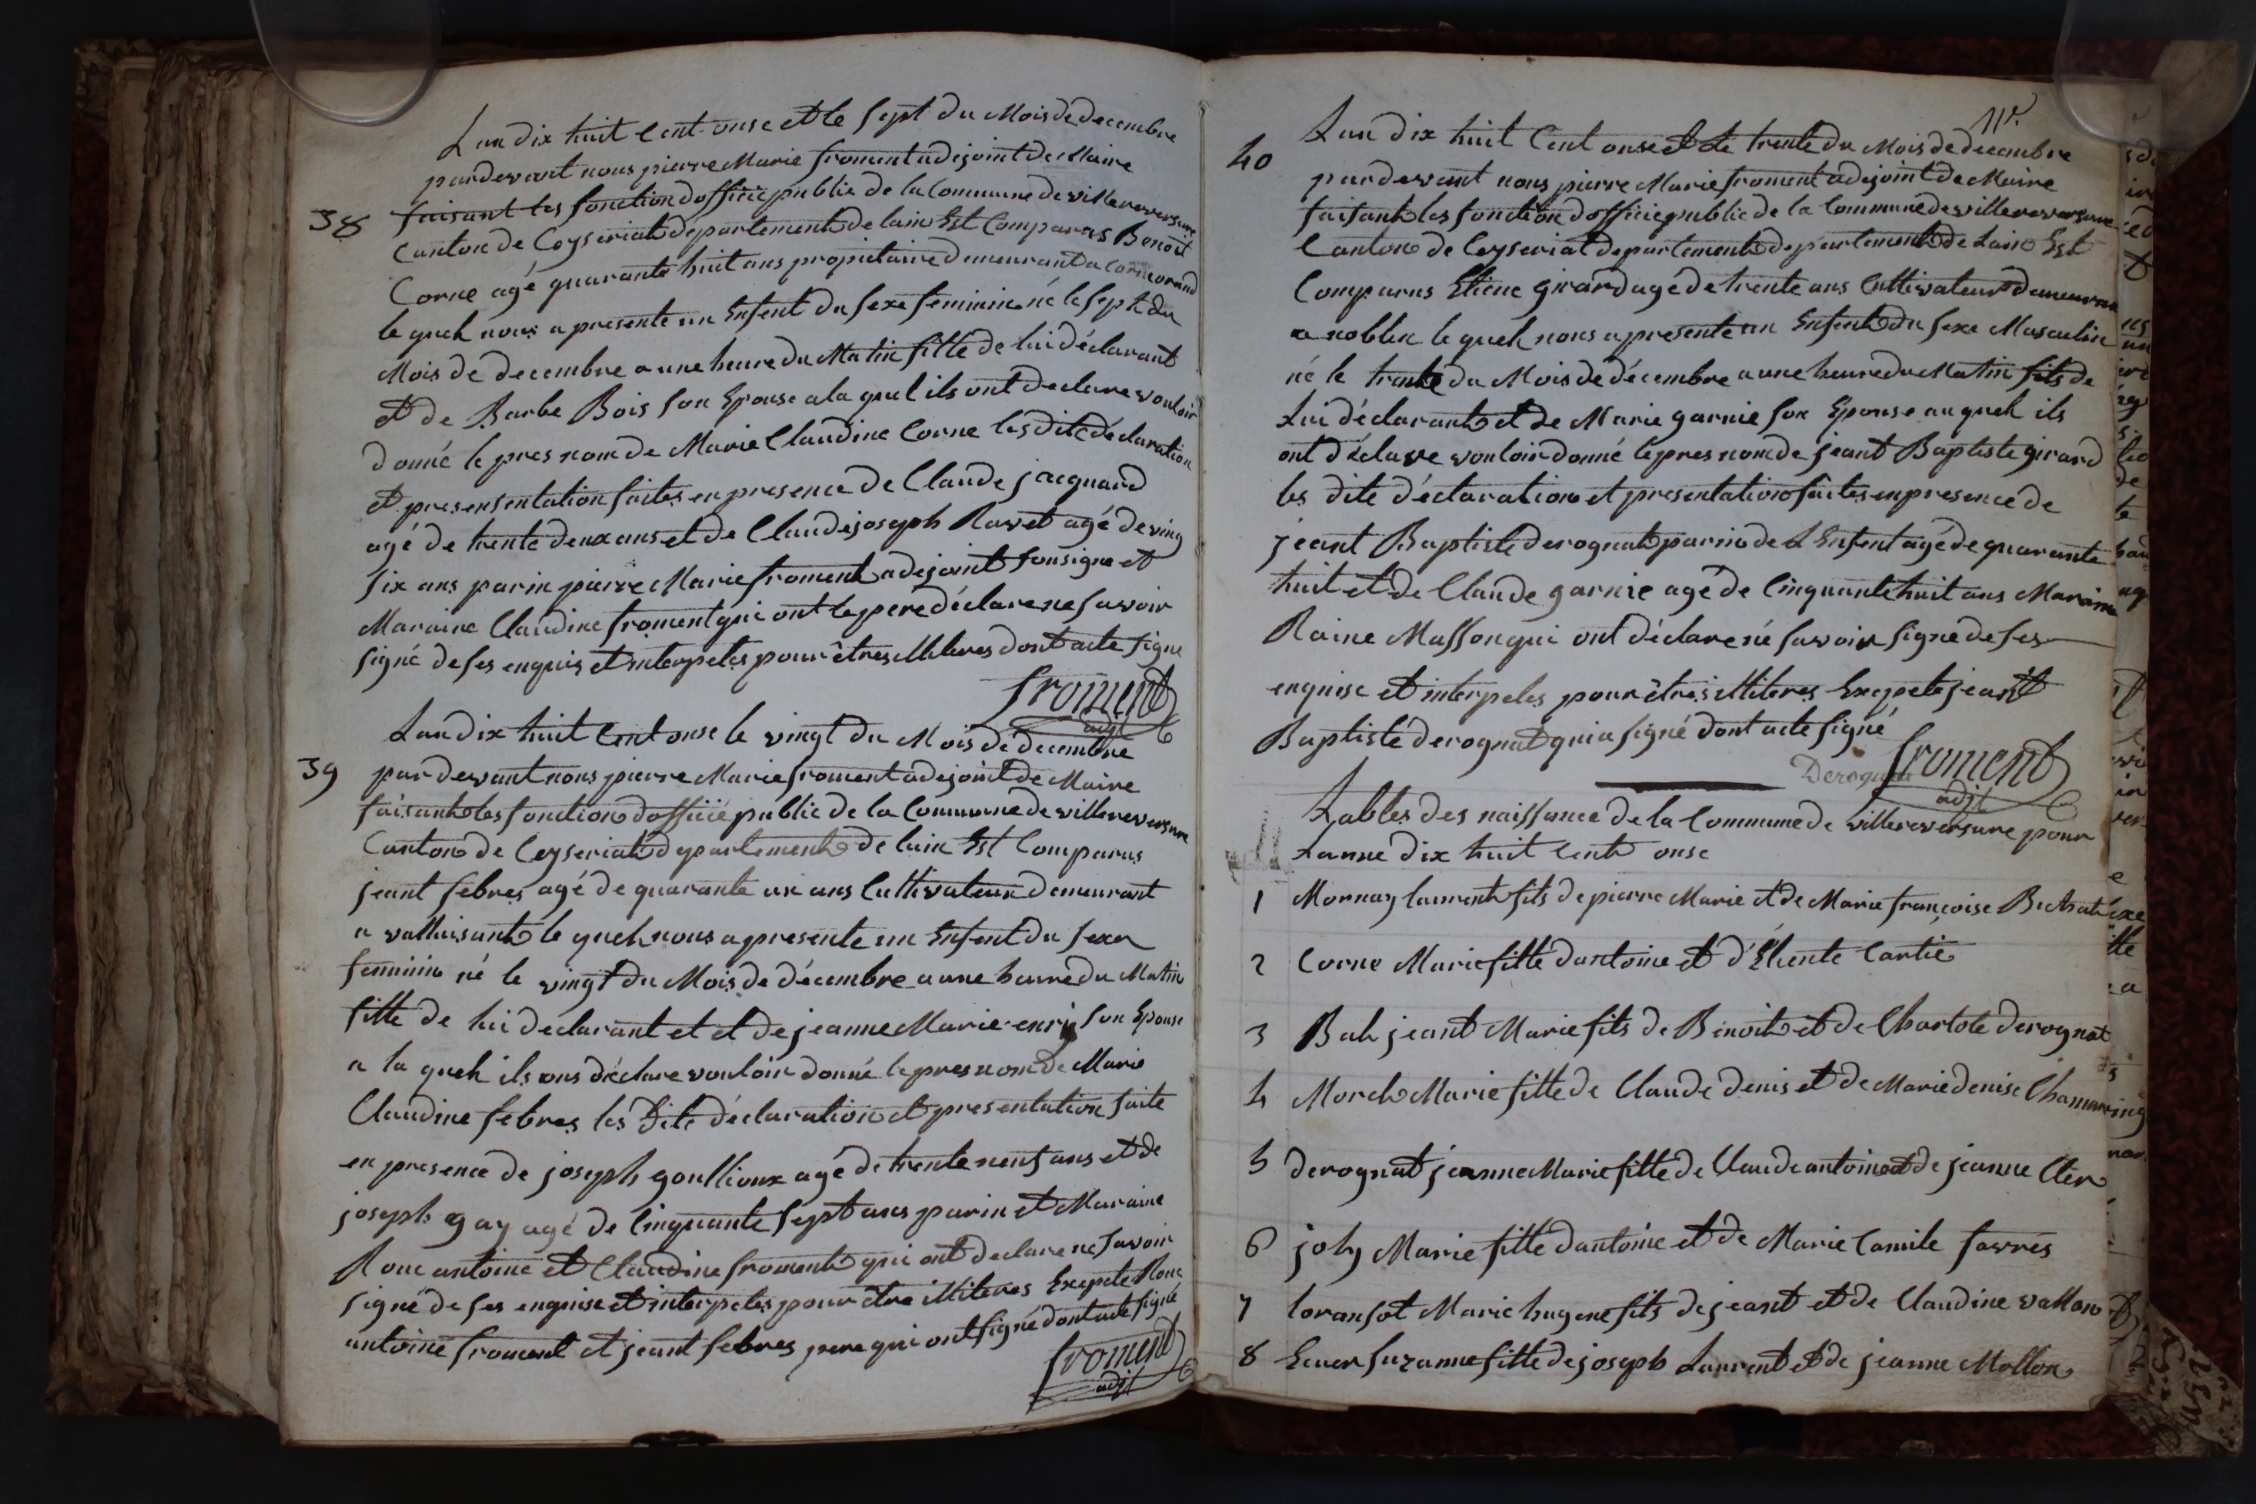 L'an dix huit Cent onse et le sept du Mois de decembre
pardevant nous pierre Marie froment adejoint de Maire
faisant les fonction d'officié public de la Commune de villereversure
38
Canton de Ceyseriat departement de lain Est Comparus Benoit
Corne agé quarante huit ans propietaire demeurant a Cormorand
le quel nous a presente un Enfent du sexe feminin né le sept du
Mois de decembre a une heure du Matin fille de lui déclarant
et de Barbe Bois son Epouse a la quel ils ont declare vouloir
donné le pres nom de Marie Claudine Corne les dite déclaration
et presensentation faites en presence de Claude jacquand
agé de trente deux ans et de Claude joseph Ravet agé de ving
six ans parin pierre Marie froment adejoint sousigne et
Maraine Claudine froment qui ont le pere déclare ne savoir
signé de ses enquis et interpeles pour êtres illiteres dont acte signe
froment
adjt
L'an dix huit Cent onse le vingt du Mois de decembre
39
par devant nous pierre Marie froment adejoint de Maire
faisant les fonction d'officié public de la Commune de villereversure
Canton de Ceyseriat departement de lain Est Comparus
jeant febres agé de quarante un ans Cultivateur demeurant
a vallaisant le quel nous a presente un Enfent du sexe
feminin né le vingt du Mois de décembre a une heure du Matin
fille de lui declarant et et de jeanne Marie enry son Epouse
a la quel ils ons déclare vouloir donné le pres nom de Marie
Claudine febres les Dite déclaration et presentation faite
en presence de joseph goullioux agé de trente neuf ans et de
joseph gay agé de Cinquante sept ans parin et Maraine
Roux antoine et Claudine froment qui ont declare ne savoir
signé de ses enquise et interpeles pour être illiteres Exepete
antoine froment et jeant febres pere qui ont signé dont acte signé
froment
adjt
11e
L'an dix huit Cent onse et Le trente du Mois de decembre
40
pardevant nous pierre Marie froment adejoint de Maire
faisant les fonction d'officie public de la Commune de villereversure
Canton de Ceyseriat departement departement de Lain Est
Comparus Etiene girard agé de trente ans Cultivateur demeuran
a noblen le quel nous a presente un Enfent du sexe Masculin
né le trente du Mois de décembre a une heure du Matin fils de
Lui déclarant et de Marie garnie son Epouse au quel ils
ont déclare vouloir donné le pres nom de jeant Baptiste girard
les dite déclaration et presentation faites en presence de
jeant Baptiste derognat parin de L'Enfent agé de quarante
huit et de Claude garnie agé de Cinquante huit ans Maraine
Raine Masson qui ont déclare né savoir signe de ses
enquise et interpeles pour êtres illiteres Exepete jeant
Baptiste derognat qui a signé dont acte signé
Derognat froment
adjt
Tables des naissance de la Commune de villereversure pour
Lanne dix huit Cent onse
1 Mornay laurent fils de pierre Marie et de Marie françoise
2 Corne Marie fille d'antoine et d'Eliente Cartié
3 Bal jeant Marie fils de Benoit et de Charlote derognat
4 Morel Marie fille de Claude denis et de Marie denise
5 derognat jeanne Marie fille de Claude antoine et de jeanne Cler
6 joly Marie fille d'antoine et de Marie Camile favres
7 loransot Marie hugene fils de jeant et de Claudine vallon
8 suzanne fille de joseph Laurent et de jeanne Mollon